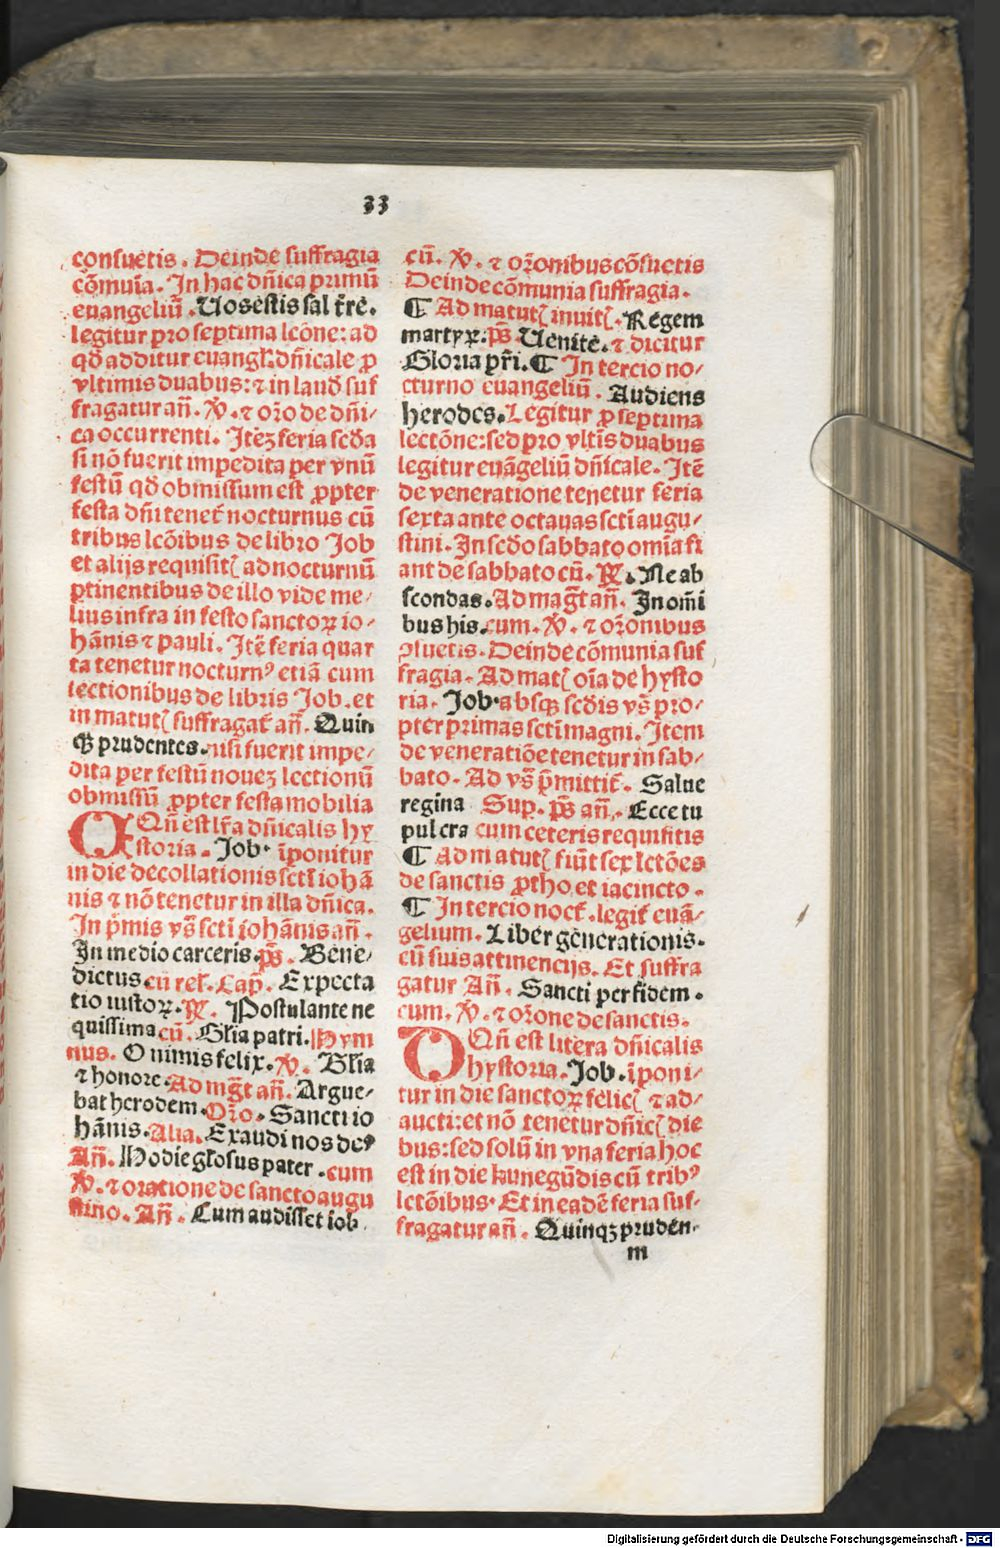 33
consuetis. Deinde suffragia
cōmuīa. In hac dn̄ica primū
euangeliū. Uos estis sal tr̄e.
legitur pro septima lcōne: ad
qd̄ additur euangl'. dn̄icale p
vltimis duabus: ⁊ in laud̄ suf
fragatur an̄. V̄. ⁊ oꝛ̄o de dn̄i-
ca occurrenti. Itēz feria scd̄a
si nō fuerit impedita per vnū
festū qd̄ obmissum est ꝓpter
festa dn̄i tenet̄ nocturnus cū
tribus lcōibus de libro Job
et alijs requisit̄ ad nocturnū
ꝑtinentibus de illo vide me-
lius infra in festo sanctoꝝ io-
hānis ⁊ pauli. Itē feria quar
ta tenetur nocturnꝰ etiā cum
lectionibus de libris Job. et
in matut̄ suffragat̄ an̄. Quin
qꝫ prudentes. nisi fuerit impe-
dita per festū nouez lectionū
obmissū ꝓpter festa mobilia
Qn̄ est lr̄a dn̄icalis hy
storia. Job. īponitur
in die decollationis scti iohā
nis ⁊ nō tenetur in illa dn̄ica.
In pͥmis vs̄ scti iohānis an̄.
In medio carceris. ps̄. Bene-
dictus cū rel'. Cap̄. Expecta
tio iustoꝝ. ℟. Postulante ne
quissima cū. Gl'ia patri. Hym
nus. O nimis felix. V̄. Gl'ia
⁊ honore. Ad mgt̄ an̄. Argue-
bat herodem. Oꝛ̄o. Sancti io
hānis. Alia. Exaudi nos deꝰ
An̄. Hodie gl'osus pater. cum
V̄. ⁊ oratione de sancto augu
stino. An̄. Cum audisset iob
cū. V̄. ⁊ oꝛ̄onibus cōsuetis
Deinde cōmunia suffragia.
¶ Ad matut̄ inuit̄. Regem
martyꝝ. ps̄. Uenite. ⁊ dicitur
Gloria pr̄i. ¶ In tercio no-
cturno euangeliū. Audiens
herodes. Legitur ꝓ septima
lectōne: sed pro vltīs duabus
legitur euāgeliū dn̄icale. Itē
de veneratione tenetur feria
sexta ante octauas scti augu-
stini. In scd̄o sabbato oīa fi
ant de sabbato cū. ℟. Ne ab
scondas. Ad magt̄ an̄. In om̄i
bus his. cum. V̄. ⁊ oꝛ̄onibus
ꝯsuetis. Deinde cōmunia suf
fragia. Ad mat̄ oīa de hysto
ria. Job. absqꝫ scd̄is vs̄ pro-
pter primas scti magni. Item
de veneratiōe tenetur in sab-
bato. Ad vs̄ p̄mittit̄. Salue
regina Sup. ps̄ an̄. Ecce tu
pulcra cum ceteris requisitis
¶ Ad matut̄ fiūt sex lctōes
de sanctis ꝓtho. et iacincto.
¶ In tercio noct̄. legit̄ euā-
gelium. Liber generationis.
cū suis attinencijs. Et suffra
gatur An̄. Sancti per fidem.
cum. V̄. ⁊ oꝛ̄one de sanctis.
Qn̄ est litera dn̄icalis
hystoria. Job. īponi-
tur in die sanctoꝝ felic̄ ⁊ ad-
aucti: et nō tenetur dn̄ic̄ die
bus: sed solū in vna feria hoc
est in die kunegūdis cū tribꝰ
lctōibus. Et in eadē feria suf-
fragatur an̄. Quinqꝫ prudēn-
m
Digitalisierung gefördert durch die Deutsche Forschungsgemeinschaft - DFG